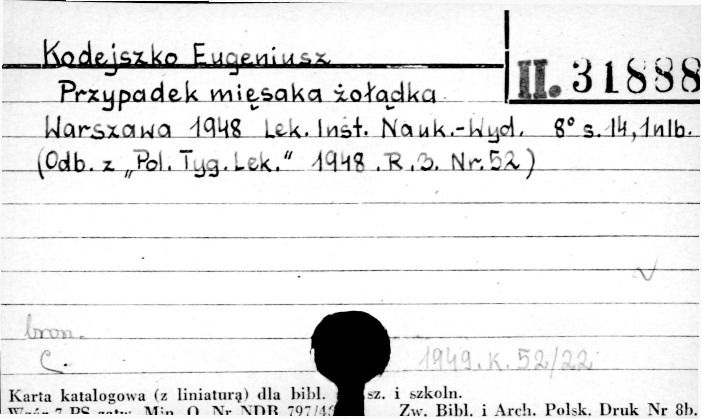 Kodejszko Eugeniusz
II. 31888
Przypadek mięsaka żołądka
Warszawa 1948 Lek. Inst. Nauk.-Wyd. 8° s. 14, 1 nlb.
(Odb. z „Pol. Tyg. Lek.“ 1948. R. 3. Nr. 52)
bron.
C.
1949. K. 52/22
Karta katalogowa (z liniaturą) dla bibl. sz. i szkoln.
Wzór 7 PS zatw. Min. O. Nr NDR 797/48 Zw. Bibl. i Arch. Polsk. Druk Nr 8b.